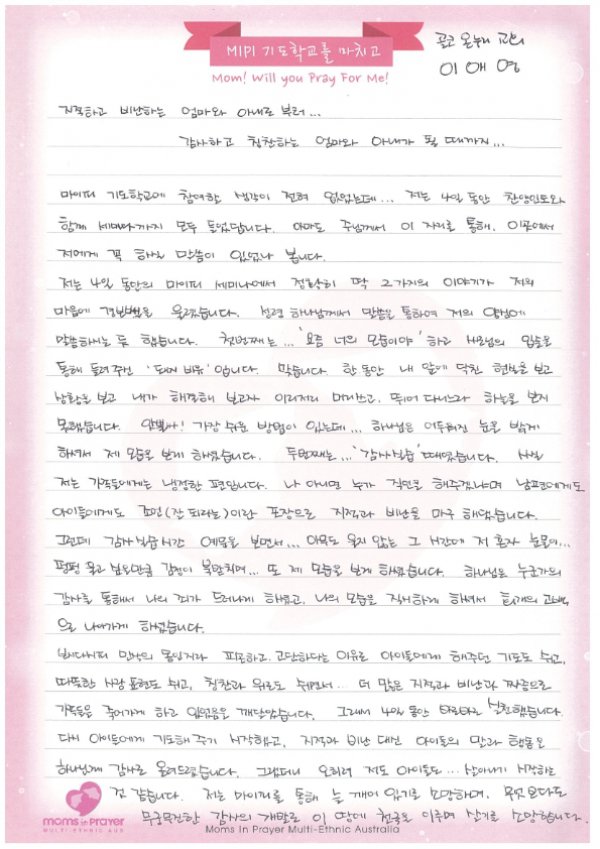 MIPI 기도학교를 마치고
Mom! Will you Pray For Me!
골코 온누리 교회
이애영
지적하고 비난하는 엄마와 아내로 부터...
감사하고 칭찬하는 엄마와 아내가 될 때까지...
마이피 기도학교에 참여할 생각이 전혀 없었는데... 저는 4일 동안 찬양인도와
함께 세미나까지 모두 들었답니다. 아마도 주님께서 이 자리를 통해, 이곳에서
저에게 꼭 하실 말씀이 있었나 봅니다.
저는 4일 동안의 마이피 세미나에서 정확히 딱 2가지의 이야기가 저의
마음에 경보벨을 울렸습니다. 성령 하나님께서 말씀을 통하여 저의 영안에
말씀하시는 듯 했습니다. 첫번째는... '요즘 너의 모습이야' 하고 사모님의 입술을
통해 들려주신 '돼지 비유' 입니다. 맞습니다. 한동안 내 앞에 닥친 현실을 보고
상황을 보고 내가 해결해 보고자 이리저리 머리쓰고, 뛰어 다니느라 하늘을 보지
못했습니다. 가장 쉬운 방법이 있는데... 하나님은 어두워진 눈을 밝게
하셔서 제 모습을 보게 하셨습니다. 두번째는...'감사실습' 때였습니다. 사실
저는 가족들에게는 냉정한 편입니다. 나 아니면 누가 직언을 해주겠냐며 남편에게도
아이들에게도 조언(잔소리라는)이란 포장으로 지적과 비난을 마구 해댔습니다.
그런데 감사실습시간 예문을 보면서... 아무도 울지 않는 그 시간에 저 혼자 눈물이...
펑펑 울고 싶을만큼 감정이 북받치며... 또 제 모습을 보게 하셨습니다. 하나님은 누군가의
감사를 통해서 나의 죄가 드러나게 하셨고, 나의 모습을 직면하게 하셔서 회개의 고백
으로 나아가게 하셨습니다.
보시다시피 만삭의 몸인지라 피곤하고, 고단하다는 이유로 아이들에게 해주던 기도도 쉬고,
따뜻한 사랑 표현도 쉬고, 칭찬과 위로도 쉬면서... 더 많은 지적과 비난과 짜증으로
가족들을 죽어가게 하고 있었음을 깨달았습니다. 그래서 4일 동안 바로바로 실천했습니다.
다시 아이들에게 기도해 주기 시작했고, 지적과 비난 대신 아이들의 말과 행동을
하나님께 감사로 올려드렸습니다. 그랬더니 오히려 저도 아이들도... 살아나기 시작하는
것 같습니다. 저는 마이피를 통해 늘 깨어 있기를 소망하며, 무엇보다도
무궁무진한 감사의 개발로 이 땅에 천국을 이루며 살기를 소망합니다.
moms in prayer
MULTI-ETHNIC AUS
Moms In Prayer Multi-Ethnic Australia